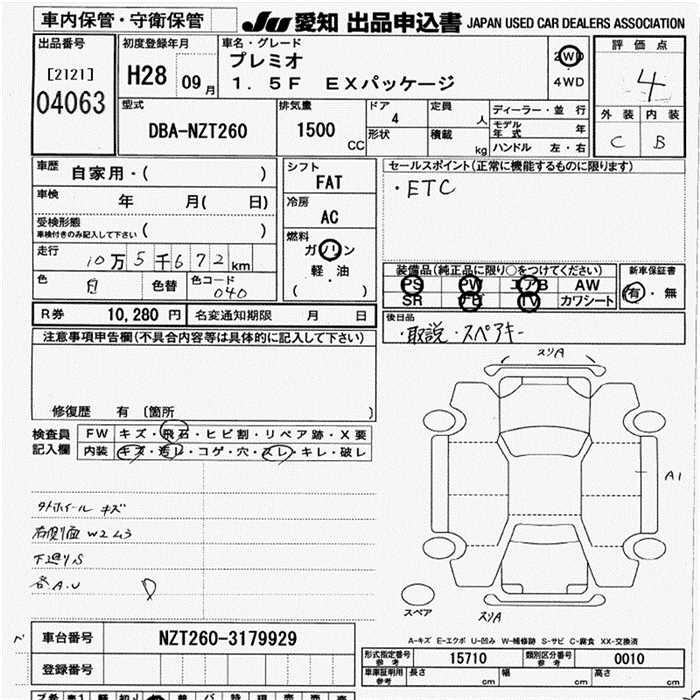 車内保管・守衛保管
JU 愛知 出品申込書 JAPAN USED CAR DEALERS ASSOCIATION
出品番号
[2121]
04063
初度登録年月
H28 09月
車名・グレード
プレミオ
1.5F EXパッケージ
2WD
4WD
評価点
4
外装 内装
C B
型式
DBA-NZT260
排気量
1500 CC
ドア
4
形状
定員
人
積載
kg
ディーラー・並行
モデル年式 年
ハンドル 左・右
車歴 自家用・( )
車検 年 月( 日)
受検形態
車検付きのみ記入して下さい ( )
走行 10万5千672km
色 白 色替 色コード 040
シフト
FAT
冷房
AC
燃料
ガソリン
軽油
( )
セールスポイント(正常に機能するものに限ります)
・ETC
装備品(純正品に限り○をつけてください)
PS PW エアB AW
SR TV カワシート
新車保証書
有・無
R券 10,280円 名変通知期限 月 日
後日品
・取説・スペアキー
注意事項申告欄(不具合内容等は具体的に記入して下さい)
修復歴 有 〔箇所 〕
検査員記入欄
FW キズ・飛石・ヒビ割・リペア跡・X要
内装 キズ・汚レ・コゲ・穴・スレ・キレ・破レ
タイホイール キズ
右側面 W2 U3
下廻りS
各A.U
スリA
A1
スペア
スリA
A-キズ E-エクボ U-凹み W-補修跡 S-サビ C-腐食 XX-交換済
車台番号 NZT260-3179929
登録番号
形式指定番号 参考 15710 類別区分番号 参考 0010
車庫証明用 参考 長さ cm 幅 cm 高さ cm